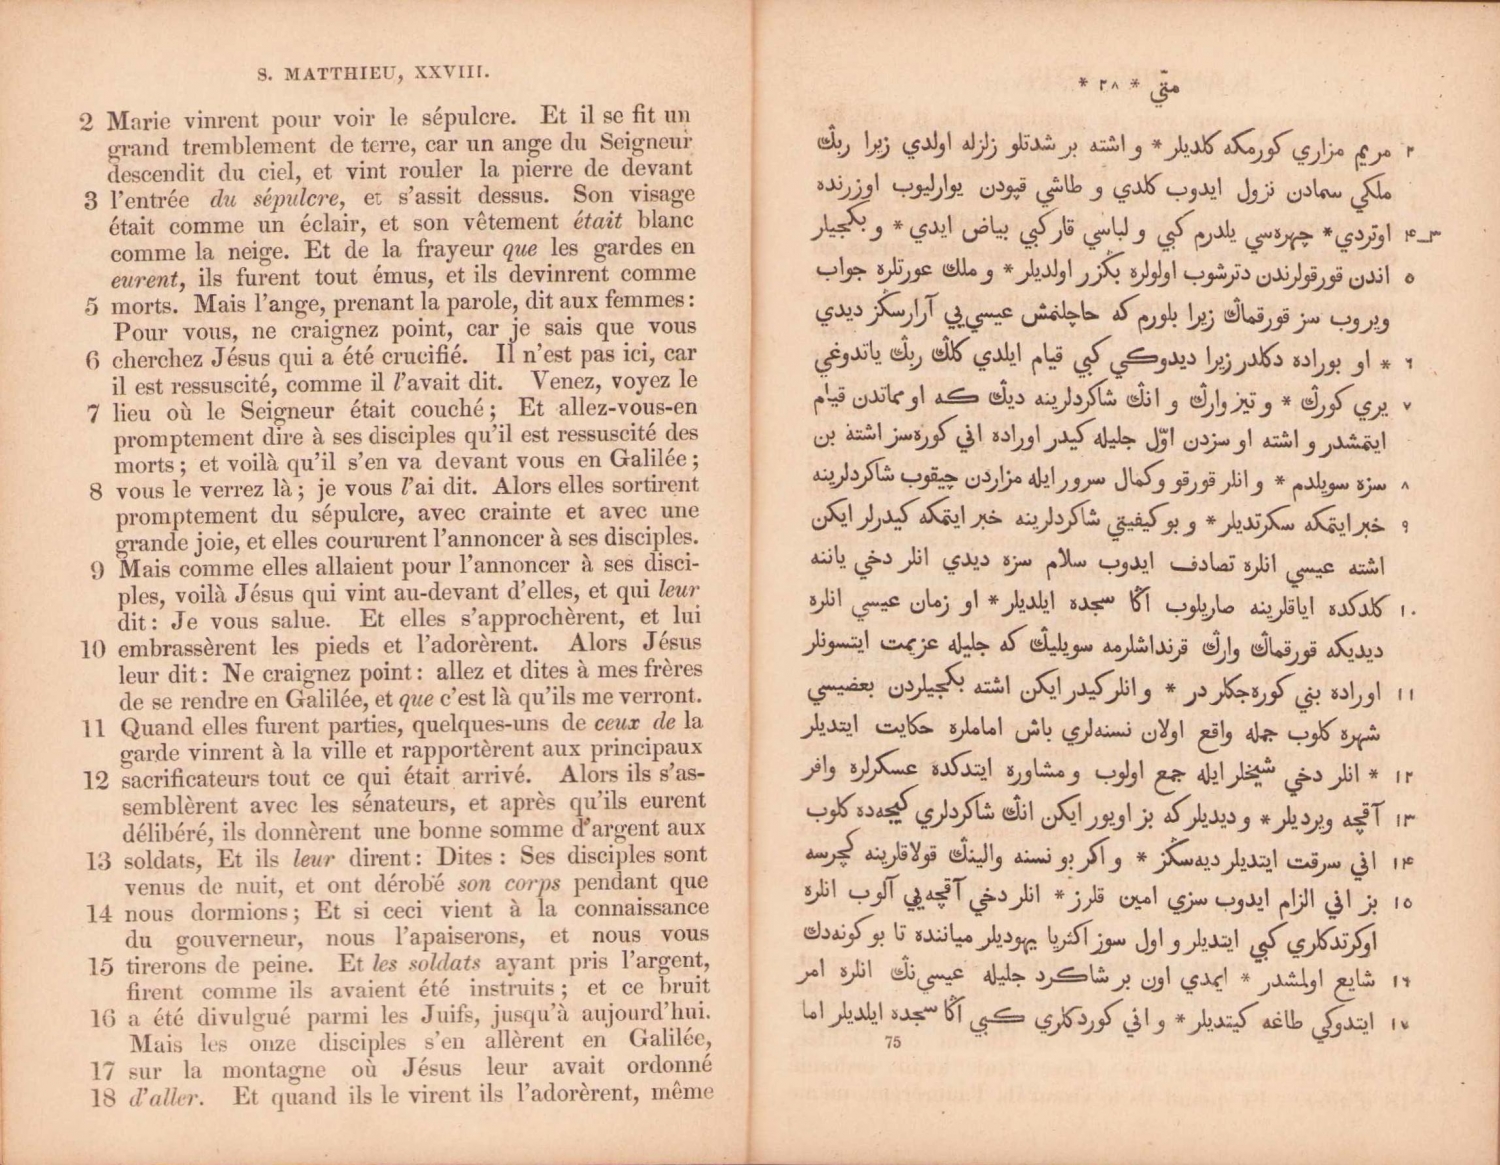 S. MATTHIEU, XXVIII.
2 Marie vinrent pour voir le sépulcre. Et il se fit un
grand tremblement de terre, car un ange du Seigneur
descendit du ciel, et vint rouler la pierre de devant
3 l'entrée du sépulcre, et s'assit dessus. Son visage
était comme un éclair, et son vêtement était blanc
comme la neige. Et de la frayeur que les gardes en
eurent, ils furent tout émus, et ils devinrent comme
5 morts. Mais l'ange, prenant la parole, dit aux femmes:
Pour vous, ne craignez point, car je sais que vous
6 cherchez Jésus qui a été crucifié. Il n'est pas ici, car
il est ressuscité, comme il l'avait dit. Venez, voyez le
7 lieu où le Seigneur était couché; Et allez-vous-en
promptement dire à ses disciples qu'il est ressuscité des
morts; et voilà qu'il s'en va devant vous en Galilée;
8 vous le verrez là; je vous l'ai dit. Alors elles sortirent
promptement du sépulcre, avec crainte et avec une
grande joie, et elles coururent l'annoncer à ses disciples.
9 Mais comme elles allaient pour l'annoncer à ses disci-
ples, voilà Jésus qui vint au-devant d'elles, et qui leur
dit: Je vous salue. Et elles s'approchèrent, et lui
10 embrassèrent les pieds et l'adorèrent. Alors Jésus
leur dit: Ne craignez point: allez et dites à mes frères
de se rendre en Galilée, et que c'est là qu'ils me verront.
11 Quand elles furent parties, quelques-uns de ceux de la
garde vinrent à la ville et rapportèrent aux principaux
12 sacrificateurs tout ce qui était arrivé. Alors ils s'as-
semblèrent avec les sénateurs, et après qu'ils eurent
délibéré, ils donnèrent une bonne somme d'argent aux
13 soldats, Et ils leur dirent: Dites: Ses disciples sont
venus de nuit, et ont dérobé son corps pendant que
14 nous dormions; Et si ceci vient à la connaissance
du gouverneur, nous l'apaiserons, et nous vous
15 tirerons de peine. Et les soldats ayant pris l'argent,
firent comme ils avaient été instruits; et ce bruit
16 a été divulgué parmi les Juifs, jusqu'à aujourd'hui.
Mais les onze disciples s'en allèrent en Galilée,
17 sur la montagne où Jésus leur avait ordonné
18 d'aller. Et quand ils le virent ils l'adorèrent, même
متّي * ٢٨ *
٢ مريم مزاري كورمكه كلديلر * و اشته بر شدتلو زلزله اولدي زيرا ربڭ
ملكي سمادن نزول ايدوب كلدي و طاشي قپودن يوارليوب اوزرنده
٣_۴ اوتردي * چهره‌سي يلدرم كبي و لباسي قار كبي بياض ايدي * و بكجيلر
٥ اندن قورقولرندن دترشوب اولولره بڭزر اولديلر * و ملك عورتلره جواب
ويروب سز قورقماڭ زيرا بلورم كه حاچلنمش عيسي‌يي آرارسڭز ديدي
٦ * او بوراده دكلدر زيرا ديدوكي كبي قيام ايلدي كلڭ ربڭ ياتدوغي
٧ يري كورڭ * و تيز وارڭ و انڭ شاكردلرينه ديڭ كه او مماتدن قيام
ايتمشدر و اشته او سزدن اوّل جليله كيدر اوراده اني كوره‌سز اشته بن
٨ سزه سويلدم * و انلر قورقو و كمال سرور ايله مزاردن چيقوب شاكردلرينه
٩ خبر ايتمكه سكرتديلر * و بو كيفيتي شاكردلرينه خبر ايتمكه كيدرلر ايكن
اشته عيسي انلره تصادف ايدوب سلام سزه ديدي انلر دخي ياننه
١٠ كلدكده اياقلرينه صاريلوب اڭا سجده ايلديلر * او زمان عيسي انلره
ديديكه قورقماڭ وارڭ قرنداشلرمه سويليڭ كه جليله عزيمت ايتسونلر
١١ اوراده بني كوره‌جكلر در * و انلر كيدر ايكن اشته بكجيلردن بعضيسي
شهره كلوب جمله واقع اولان نسنه‌لري باش اماملره حكايت ايتديلر
١٢ * انلر دخي شيخلر ايله جمع اولوب و مشاوره ايتدكده عسكرلره وافر
١٣ آقچه ويرديلر * و ديديلر كه بز اويور ايكن انڭ شاكردلري كيجه‌ده كلوب
١۴ اني سرقت ايتديلر ديه‌سڭز * و اكر بو نسنه والينڭ قولاقلرينه كچرسه
١٥ بز اني الزام ايدوب سزي امين قلرز * انلر دخي آقچه‌يي آلوب انلره
اوكرتدكلري كبي ايتديلر و اول سوز اكثريا يهوديلر مياننده تا بو كونه‌دك
١٦ شايع اولمشدر * ايمدي اون بر شاكرد جليله عيسي‌نڭ انلره امر
١٧ ايتدوكي طاغه كيتديلر * و اني كوردكلري كبي اڭا سجده ايلديلر اما
75